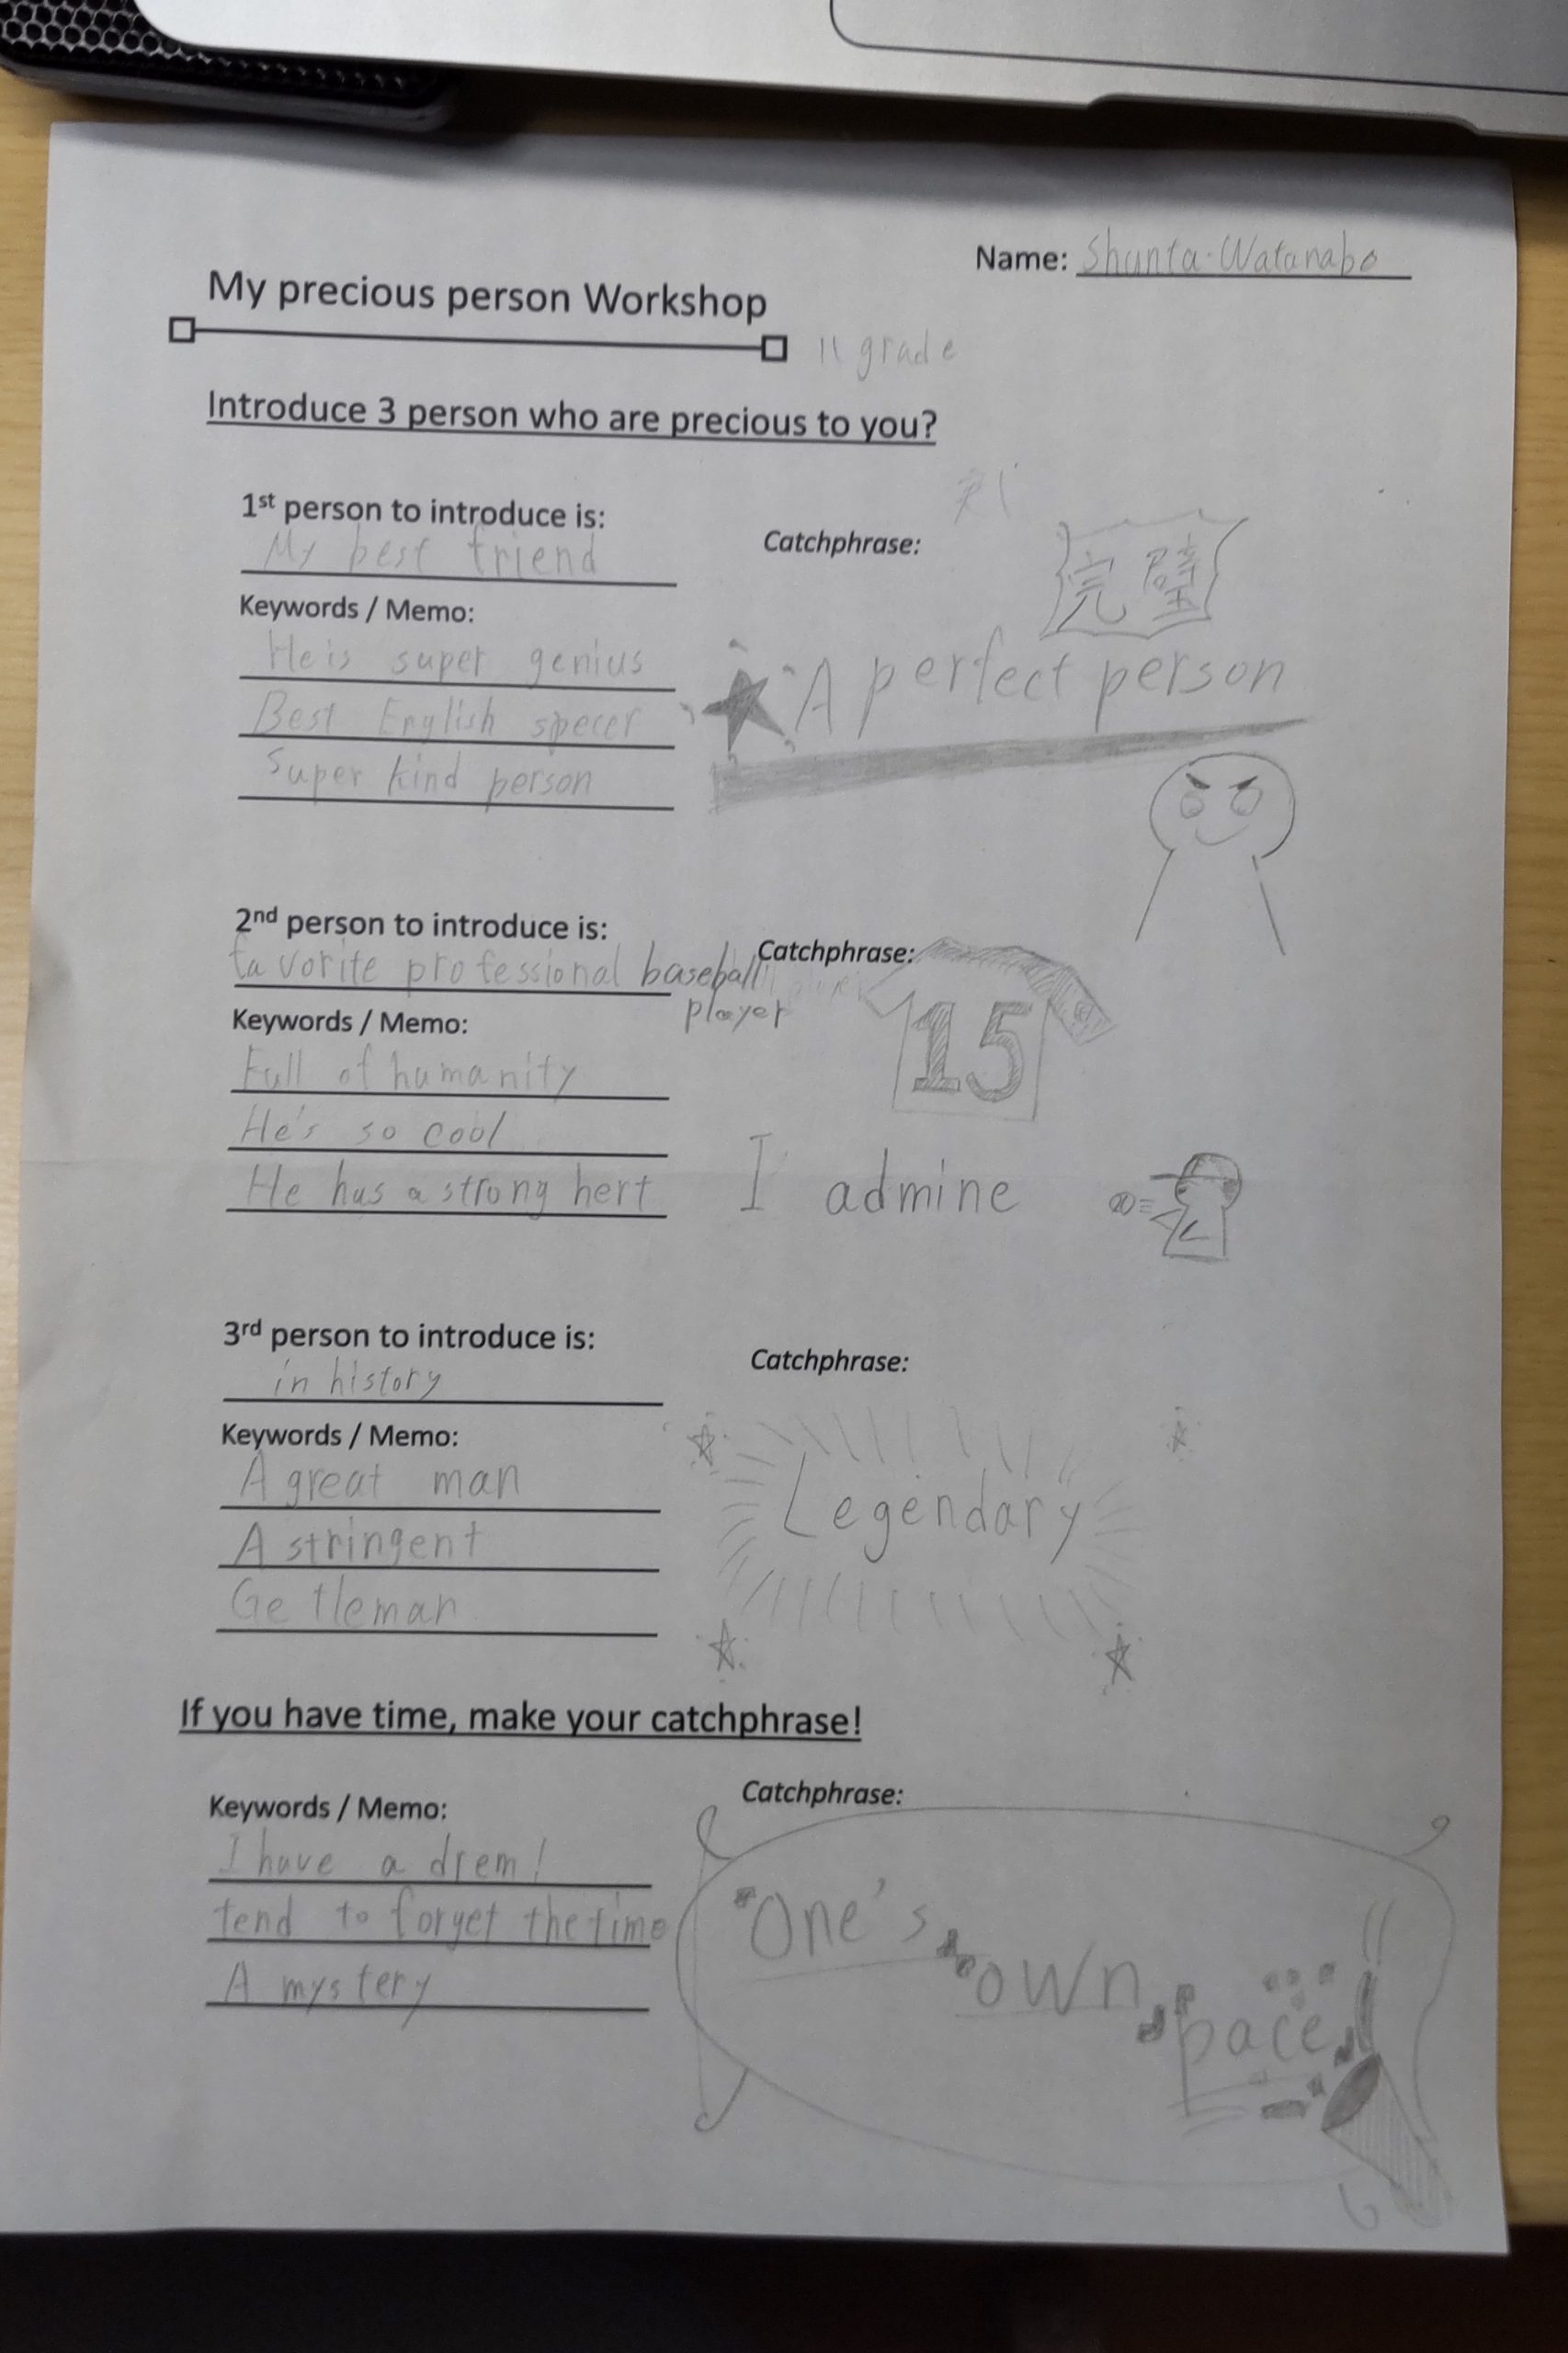 Name: Shunta Watanabe
My precious person Workshop
11 grade
Introduce 3 person who are precious to you?
1st person to introduce is:
My best friend
Catchphrase:
完璧
Keywords / Memo:
He is super genius
Best English specer
Super kind person
A perfect person
2nd person to introduce is:
favorite professional baseball
player
Catchphrase:
15
Keywords / Memo:
Full of humanity
He's so cool
He has a strong hert
I admine
3rd person to introduce is:
in history
Catchphrase:
Keywords / Memo:
A great man
A stringent
Getleman
Legendary
If you have time, make your catchphrase!
Keywords / Memo:
I have a drem!
tend to forget the time
A mystery
Catchphrase:
One's
own
space